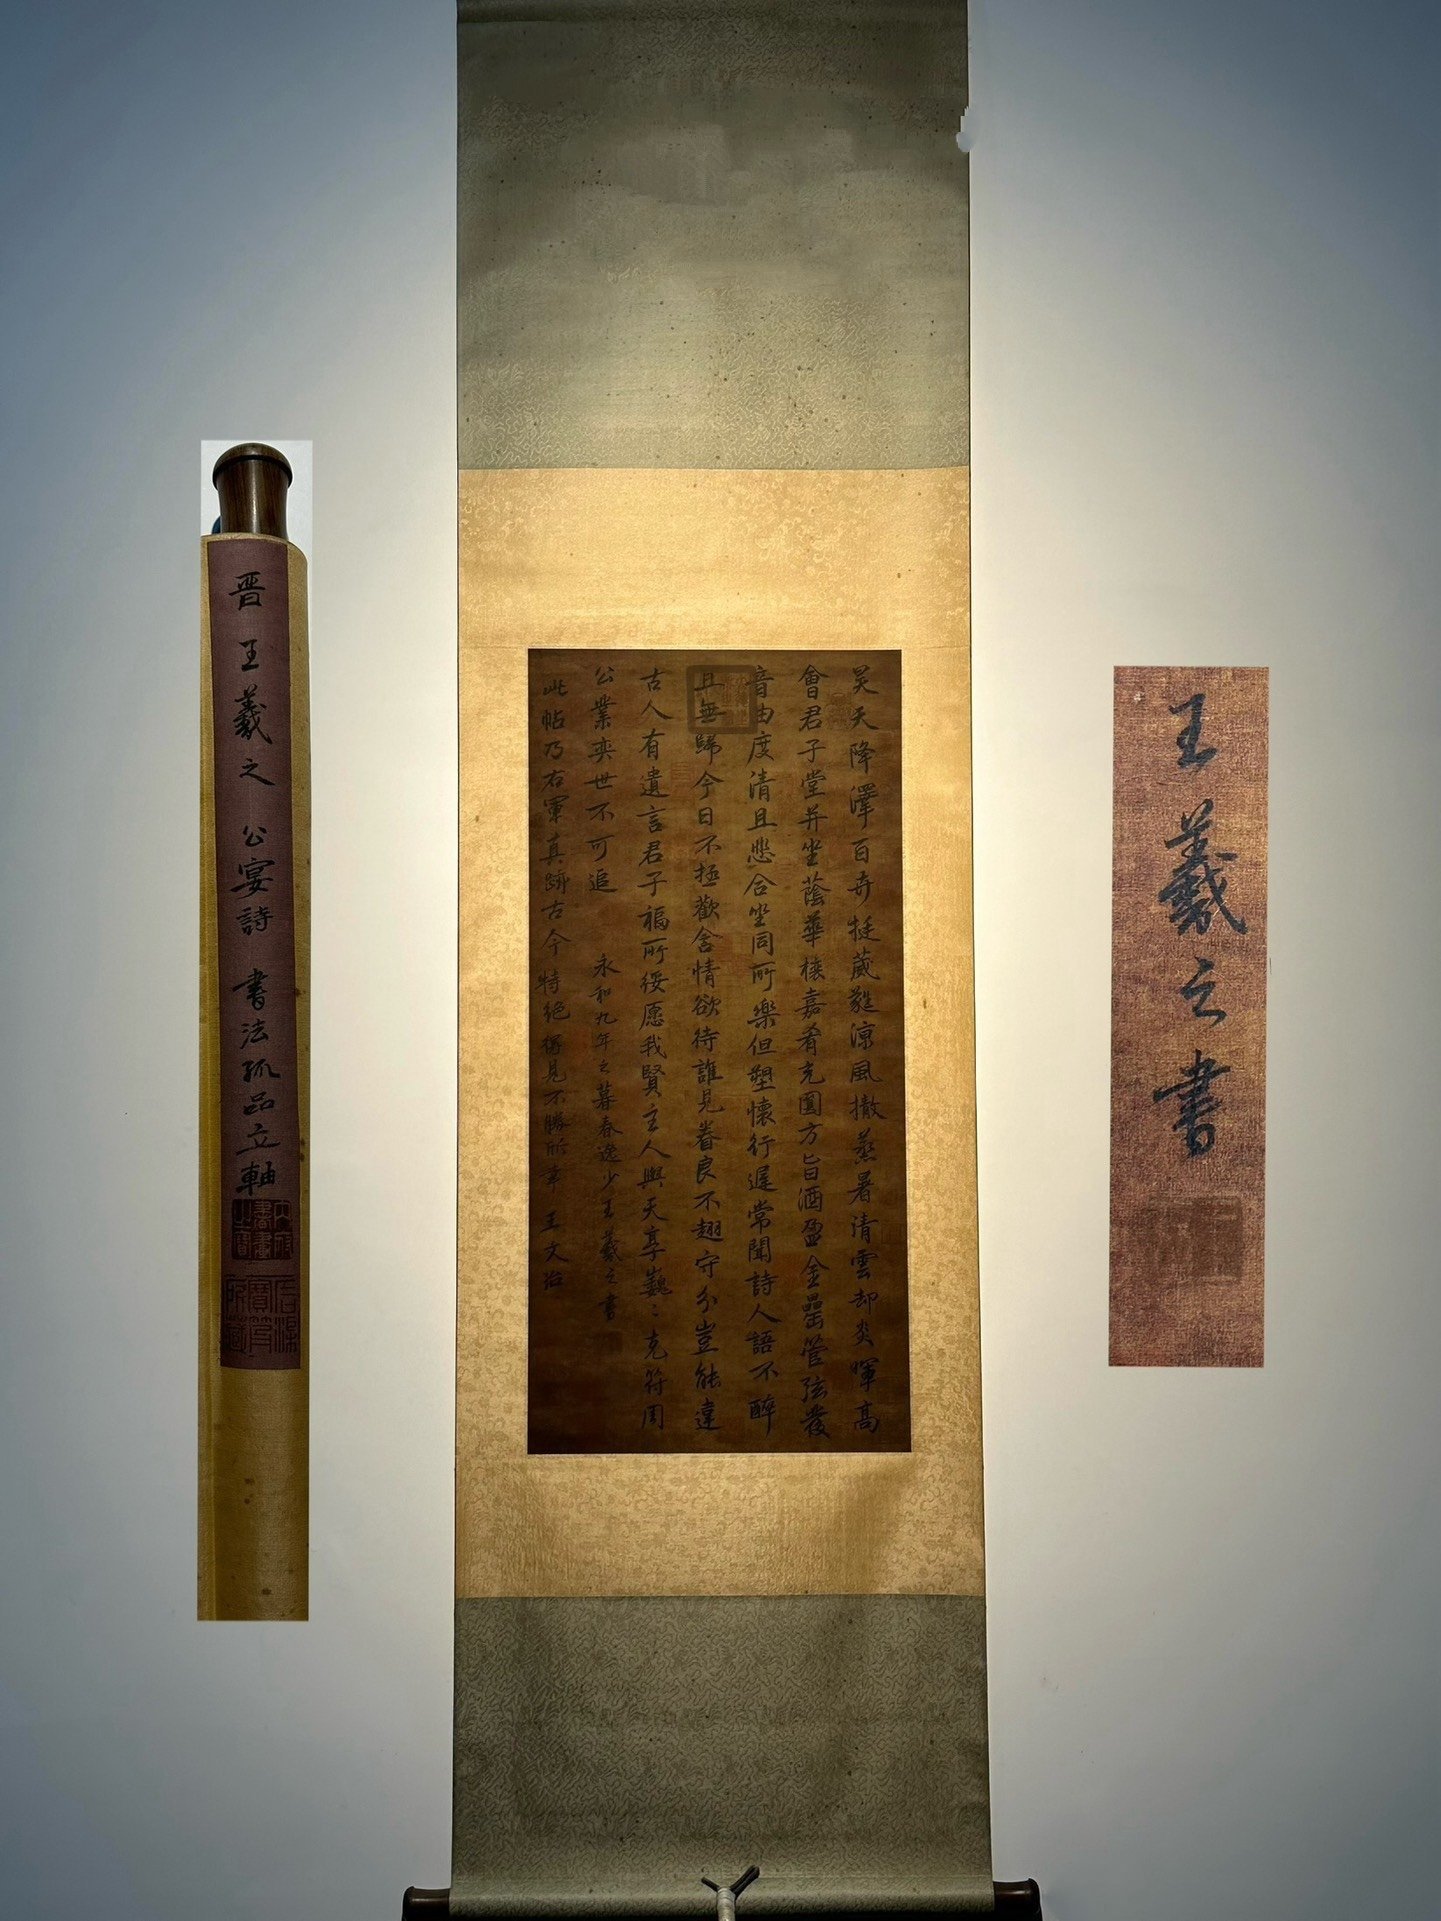 昊天降澤百卉挺葳蕤涼風撤蒸暑清雲却炎暉高
會君子堂并坐蔭華榱嘉肴充圓方旨酒盈金罍管弦發
音由度清且悲合坐同所樂但塑懷行遲常聞詩人語不醉
且無歸今日不拯歡含情欲待誰見眷良不翅守分豈能違
古人有遺言君子福所綏愿我賢主人與天享巍〻克符周
公業奕世不可追 永和九年之暮春逸少王羲之書
此帖乃右軍真跡古今特絕得見不勝所幸 王文治
晋 王羲之 公宴詩 書法孤品立軸
王羲之書